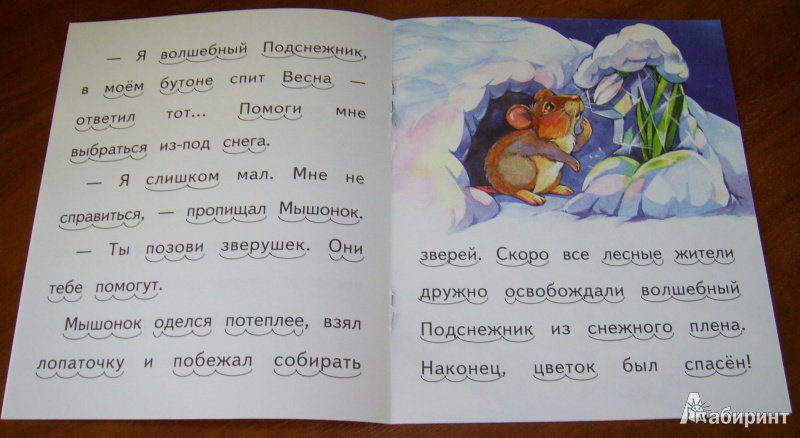 — Я волшебный Подснежник,
в моём бутоне спит Весна —
ответил тот... Помоги мне
выбраться из-под снега.
— Я слишком мал. Мне не
справиться, — пропищал Мышонок.
— Ты позови зверушек. Они
тебе помогут.
Мышонок оделся потеплее, взял
лопаточку и побежал собирать
зверей. Скоро все лесные жители
дружно освобождали волшебный
Подснежник из снежного плена.
Наконец, цветок был спасён!
Лабиринт